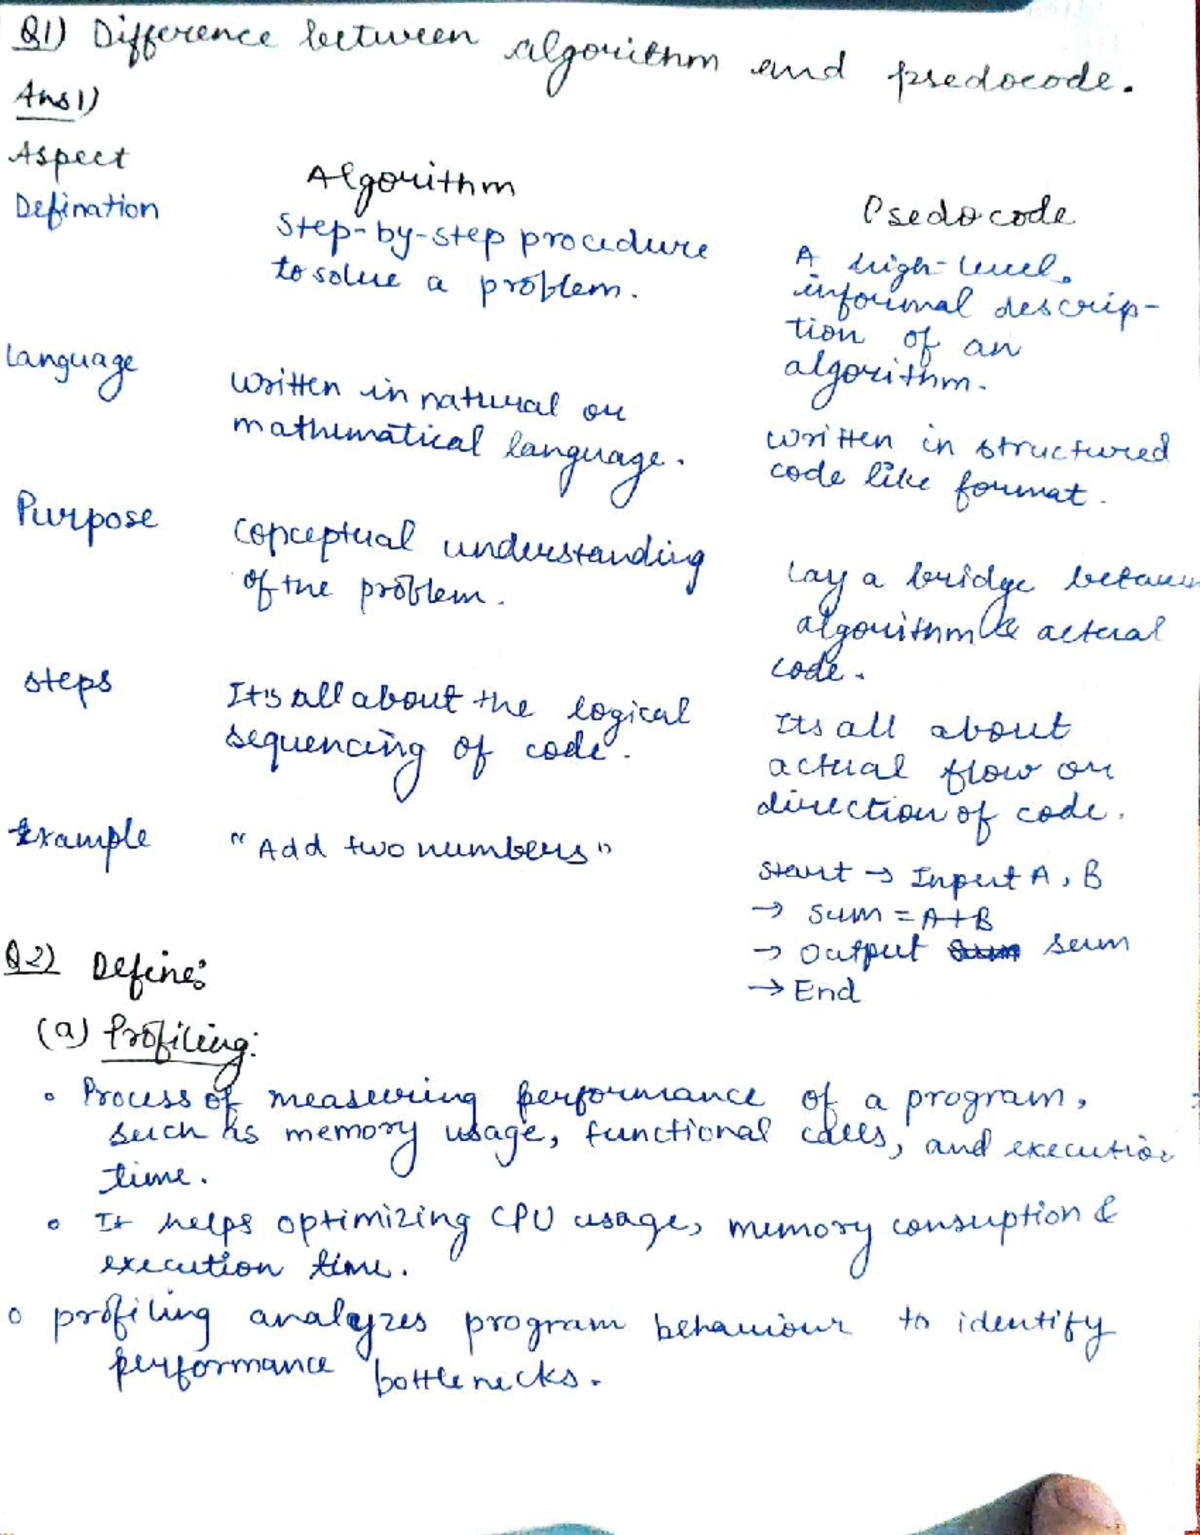 Q1) Difference between algorithm and psedocode.
Ans1)
Aspect
Algorithm
Psedocode
Defination
Step-by-step procedure
to solve a problem.
A high-level,
informal descrip-
tion of an
algorithm.
Language
Written in natural or
mathematical language.
Written in structured
code like format.
Purpose
Conceptual understanding
of the problem.
Lay a bridge between
algorithm & actual
code.
Steps
It's all about the logical
sequencing of code.
Its all about
actual flow or
direction of code.
Example
"Add two numbers"
Start → Input A, B
→ Sum = A+B
→ Output sum
→ End
Q2) Define:
(a) Profiling:
• Process of measuring performance of a program,
such as memory usage, functional calls, and execution
time.
• It helps optimizing CPU usage, memory consuption &
execution time.
• profiling analyzes program behaviour to identify
performance bottlenecks.